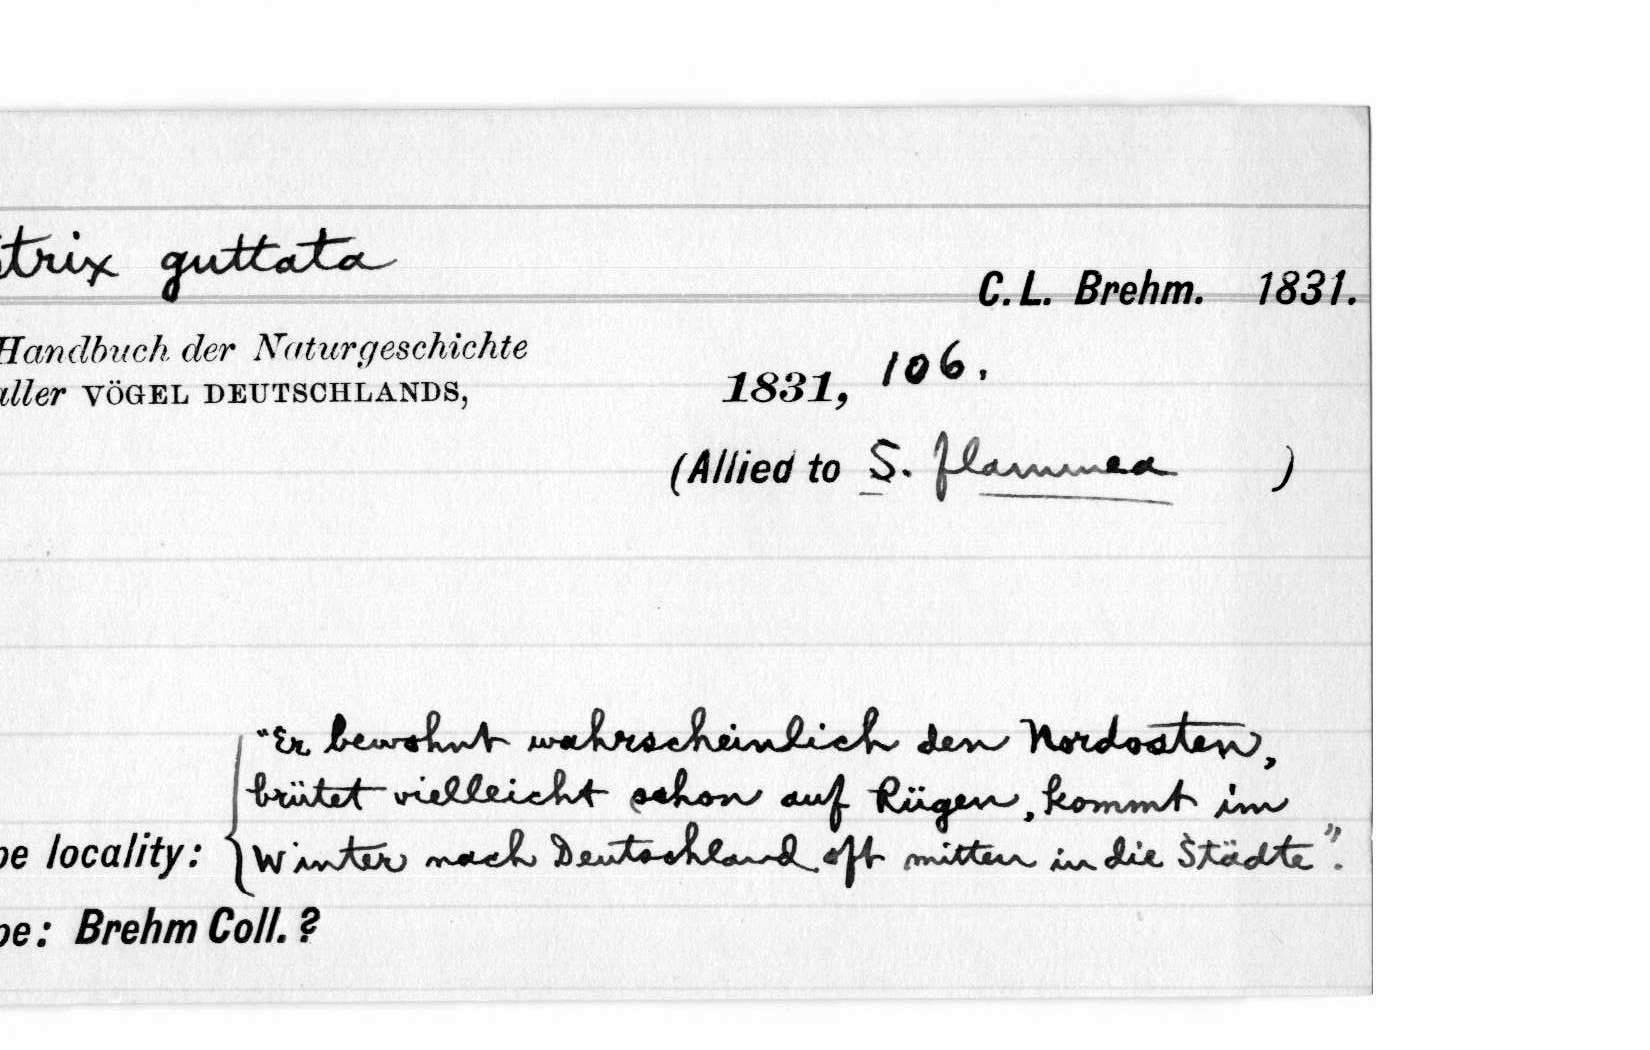 Strix guttata
C. L. Brehm. 1831.
Handbuch der Naturgeschichte
aller VÖGEL DEUTSCHLANDS,
1831, 106.
(Allied to S. flammea )
"Er bewohnt wahrscheinlich den Nordosten,
brütet vielleicht schon auf Rügen, kommt im
pe locality: Winter nach Deutschland oft mitten in die Städte".
pe: Brehm Coll. ?